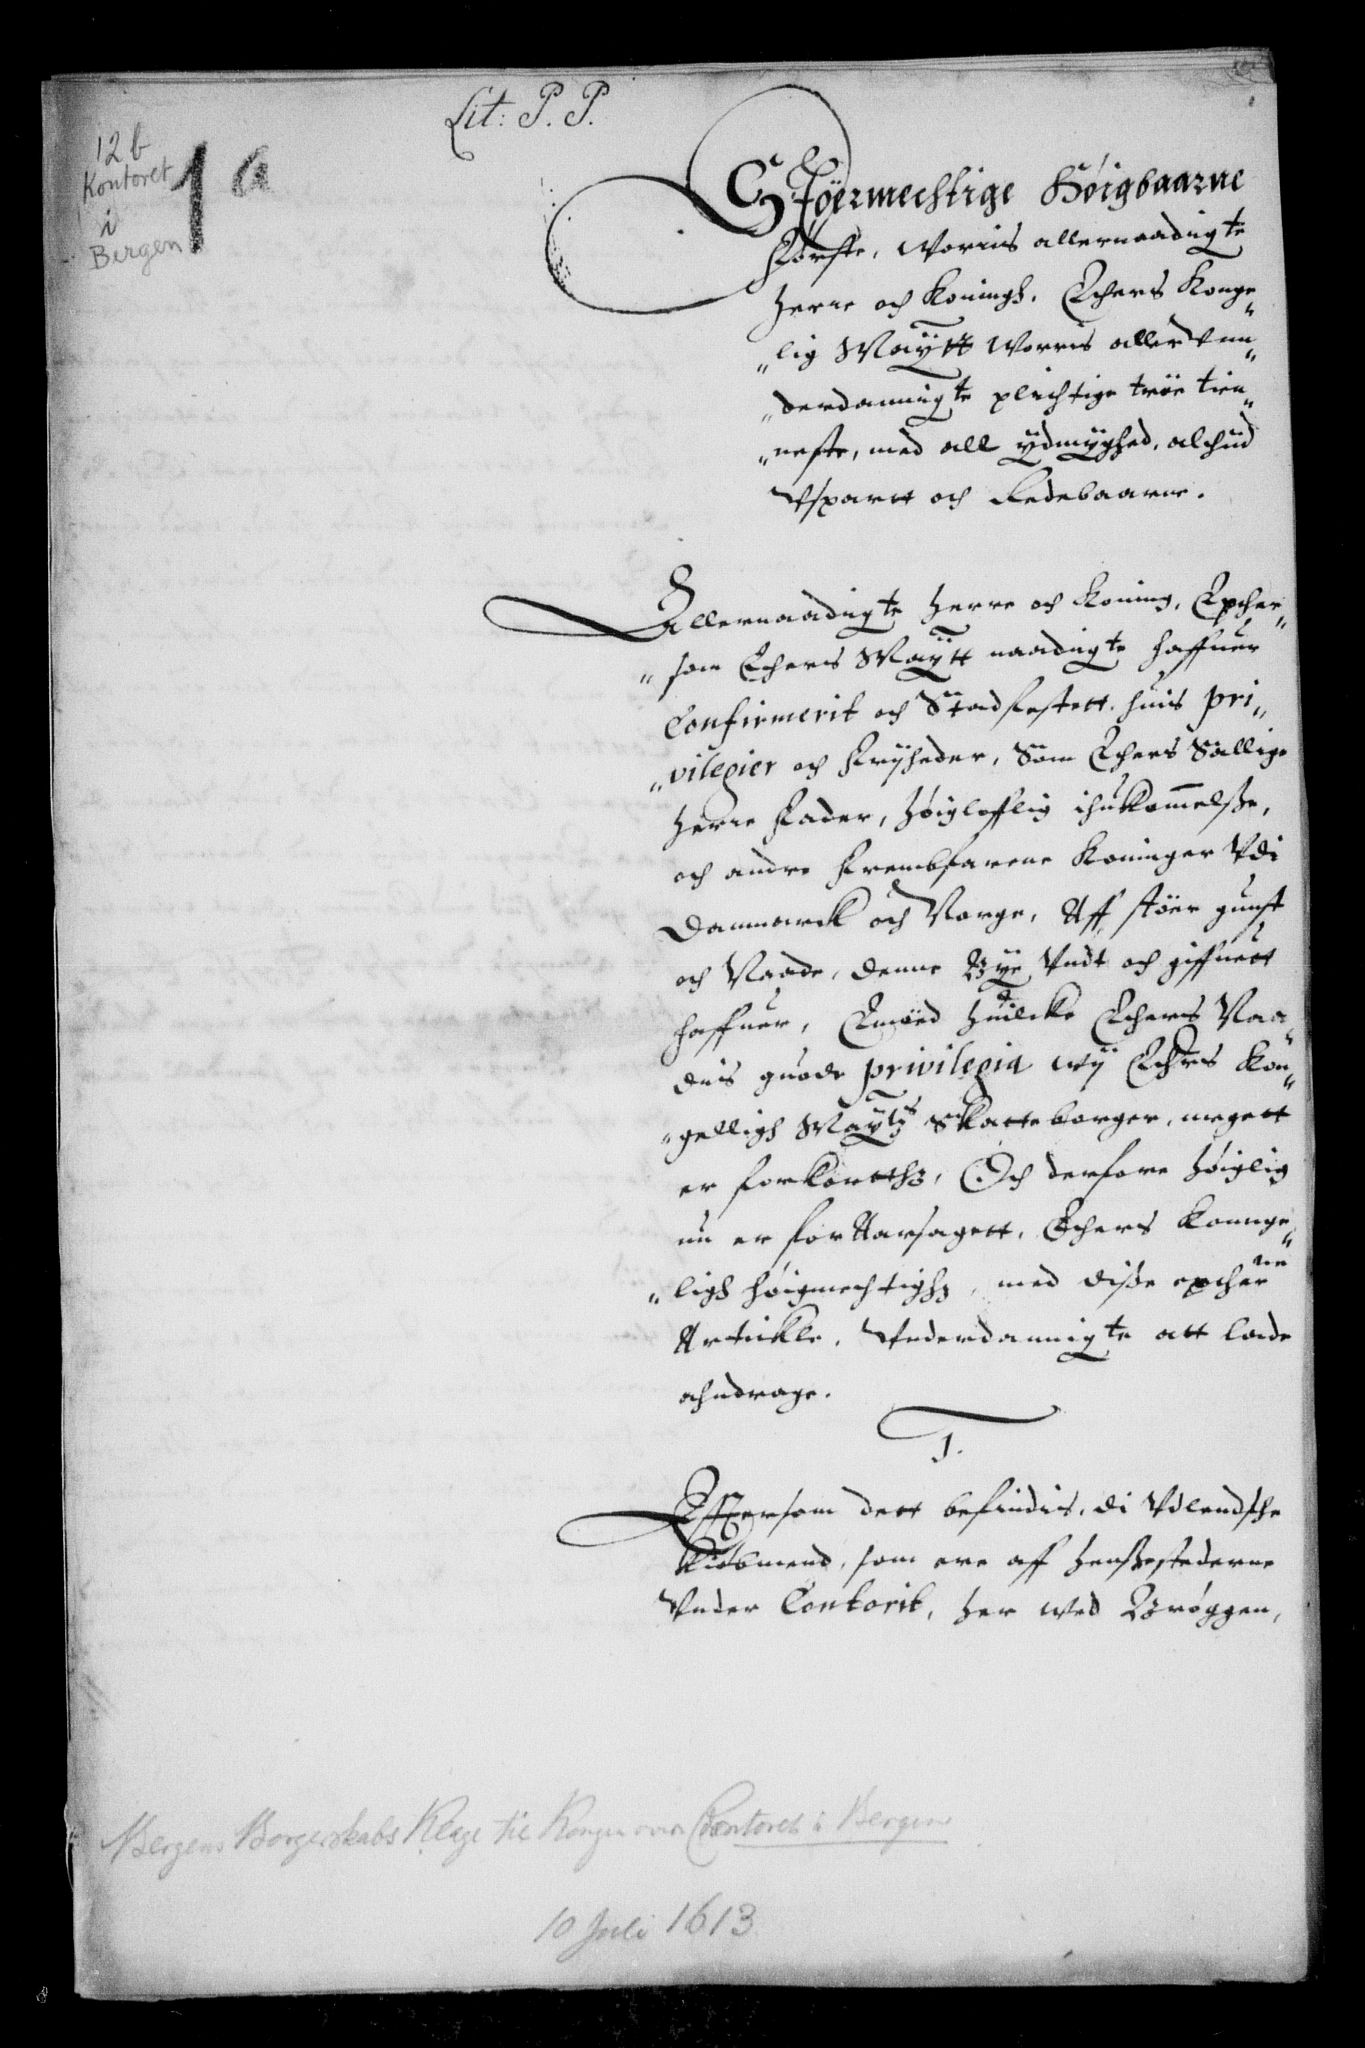 Lit: P. P.
12 b
Kontoret
i
Bergen
1 a
Stöermechtige Höigbaarne
Första, Worris allernaadigste
Herre och Koningh. Eders Konge„
„lig Maÿtt Worris aller Vnn„
„derdannigste plichtige tröe tien„
„neste, med all ÿdmÿghed, altiid
Vspart och Redebaarne.
Allernaadigste Herre och Koning, Epther„
„som Ethers Maÿtt naadigste haffuer
Confirmerit och Stadfestett. huis pri„
„vilegier och Frÿheder, Som Ethers Sallige
Herre Fader, Höigloflig ihukommelsse,
och andre Frembfarene Koninger Vdi
Danmarck och Norge, Aff stöer gunst
och Naade, denne Bÿe Vndt och giffuett
haffuer, Emöed Huilcke Ethers Naa„
dis guode privilegia wÿ Ethers Kon„
„gelligh Maÿtz Skatteborger, megett
er forkortthz, Och derfore Höiglig
nu er for Aarsagett, Ethers Konnge„
„ligh höigmechtighz, med disse epther„ne
Artickle, Vnderdannigste att lade
ahndrage.
1.
Efftersom dett befindis, di Vdlendsche
Kiöbmend, som ere aff Hensestederne
Vnder Contorit, her wed Bröggen,
Bergens Borgerskabs Klage til Kongen over Contoret i Bergen
10 Juli 1613